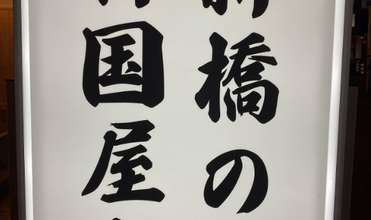 新橋の
国屋